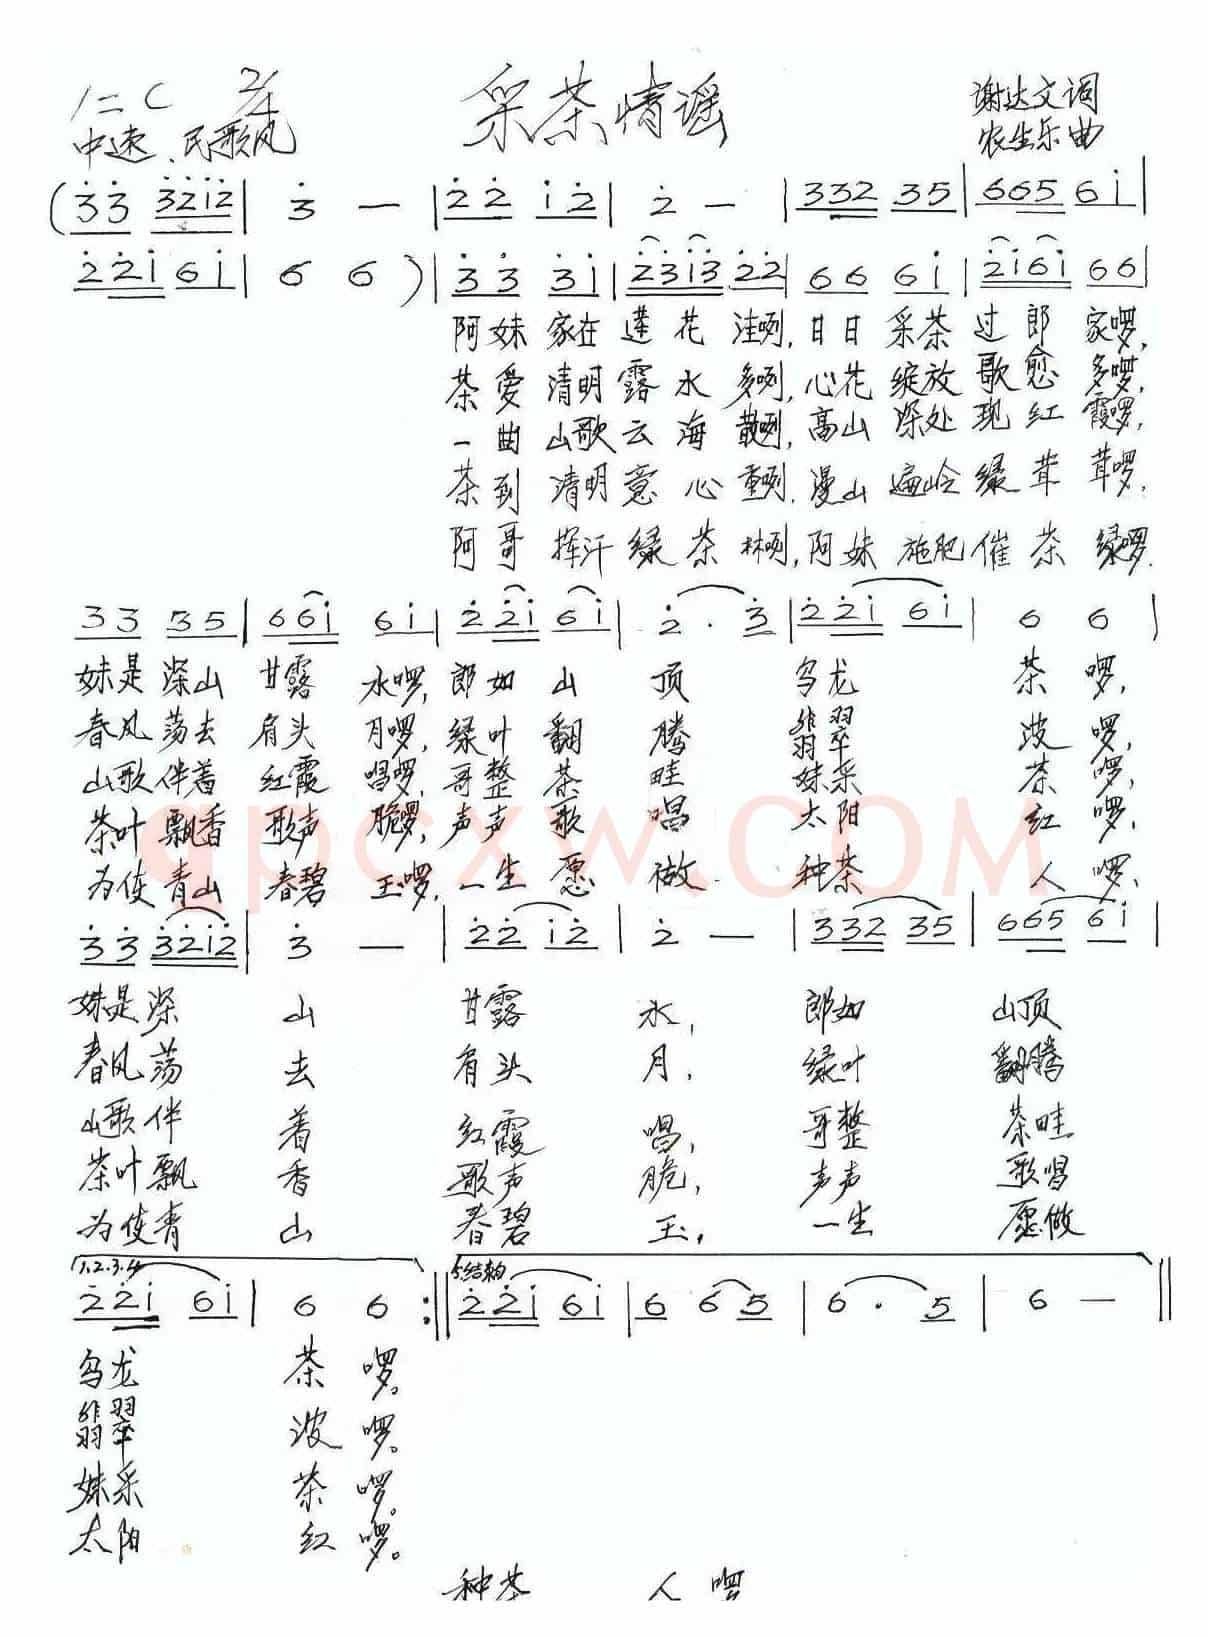 1=C 2/4 采茶情谣 谢达文词
中速、民歌风 农生乐曲
(3̇3̇ 3̇2̇1̇2̇ | 3̇ — | 2̇2̇ 1̇2̇ | 2̇ — | 332 35 | 665 61̇ |
2̇2̇1̇ 61̇ | 6 6 ) | 3̇3̇ 3̇1̇ | 2̇3̇1̇3̇ 2̇2̇ | 66 61̇ | 2̇1̇61̇ 66 |
阿妹家在莲花洼咧,甘日采茶过郎家啰,
茶爱清明露水多咧,心花绽放歌愈多啰,
一曲山歌云海散咧,高山深处现红霞啰,
茶到清明意心重咧,漫山遍岭绿茸茸啰,
阿哥挥汗绿茶林咧,阿妹施肥催茶绿啰.
33 35 | 661̇ 61̇ | 2̇2̇1̇ 61̇ | 2̇ · 3̇ | 2̇2̇1̇ 61̇ | 6 6 |
妹是深山甘露水啰,郎如山顶乌龙茶啰,
春风荡去肩头月啰,绿叶翻腾翡翠波啰,
山歌伴着红霞唱啰,哥整茶畦妹采茶啰,
茶叶飘香歌声脆啰,声声歌唱太阳红啰,
为使青山春碧玉啰,一生愿做种茶人啰、
3̇3̇ 3̇2̇1̇2̇ | 3̇ — | 2̇2̇ 1̇2̇ | 2̇ — | 332 35 | 665 61̇ |
妹是深山甘露水,郎如山顶
春风荡去肩头月,绿叶翻腾
山歌伴着红霞唱,哥整茶畦
茶叶飘香歌声脆,声声歌唱
为使青山春碧玉,一生愿做
1.2.3.4 5.结束句
2̇2̇1̇ 61̇ | 6 6 :‖ 2̇2̇1̇ 61̇ | 6 65 | 6 · 5 | 6 — ‖
乌龙茶啰。
翡翠波啰。
妹采茶啰。
太阳红啰。
种茶人啰
qpcxw.COM